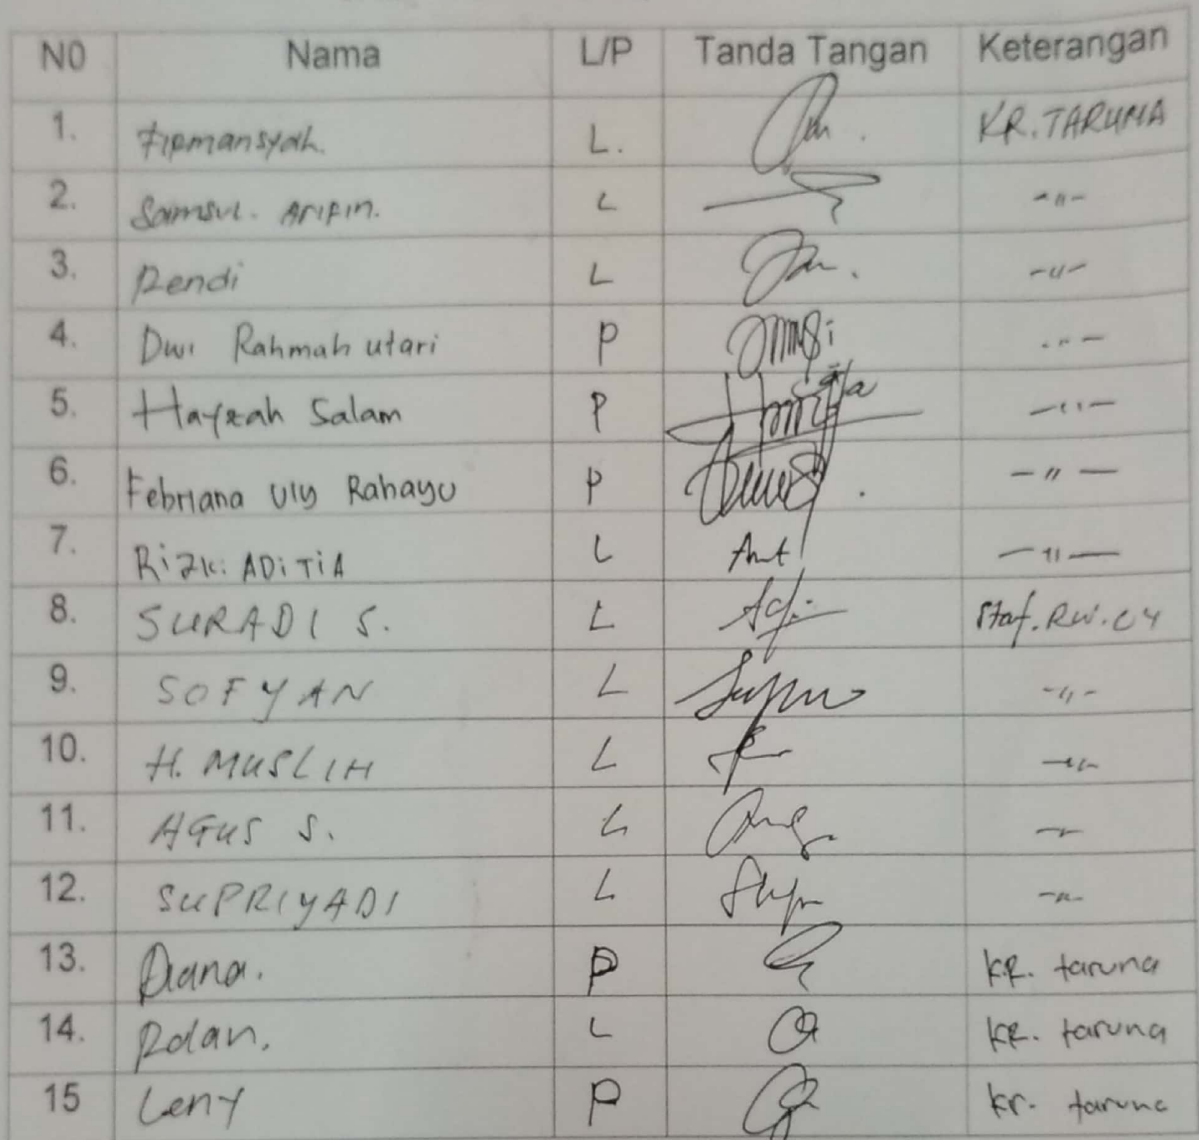 N0 Nama L/P Tanda Tangan Keterangan
1. Firmansyah. L. KR. TARUNA
2. Samsul. Aripin. L -"-
3. Rendi L -"-
4. Dwi Rahmah utari P -"-
5. Hayzah Salam P -"-
6. Febriana Uly Rahayu P -"-
7. Rizki ADiTiA L -"-
8. SURADI S. L Staf. RW. 04
9. SOFYAN L -"-
10. H. MUSLIH L -"-
11. AGUS S. L -"-
12. SUPRIYADI L -"-
13. Diana. P KR. taruna
14. Rolan. L KR. taruna
15 Leny P kr. taruna